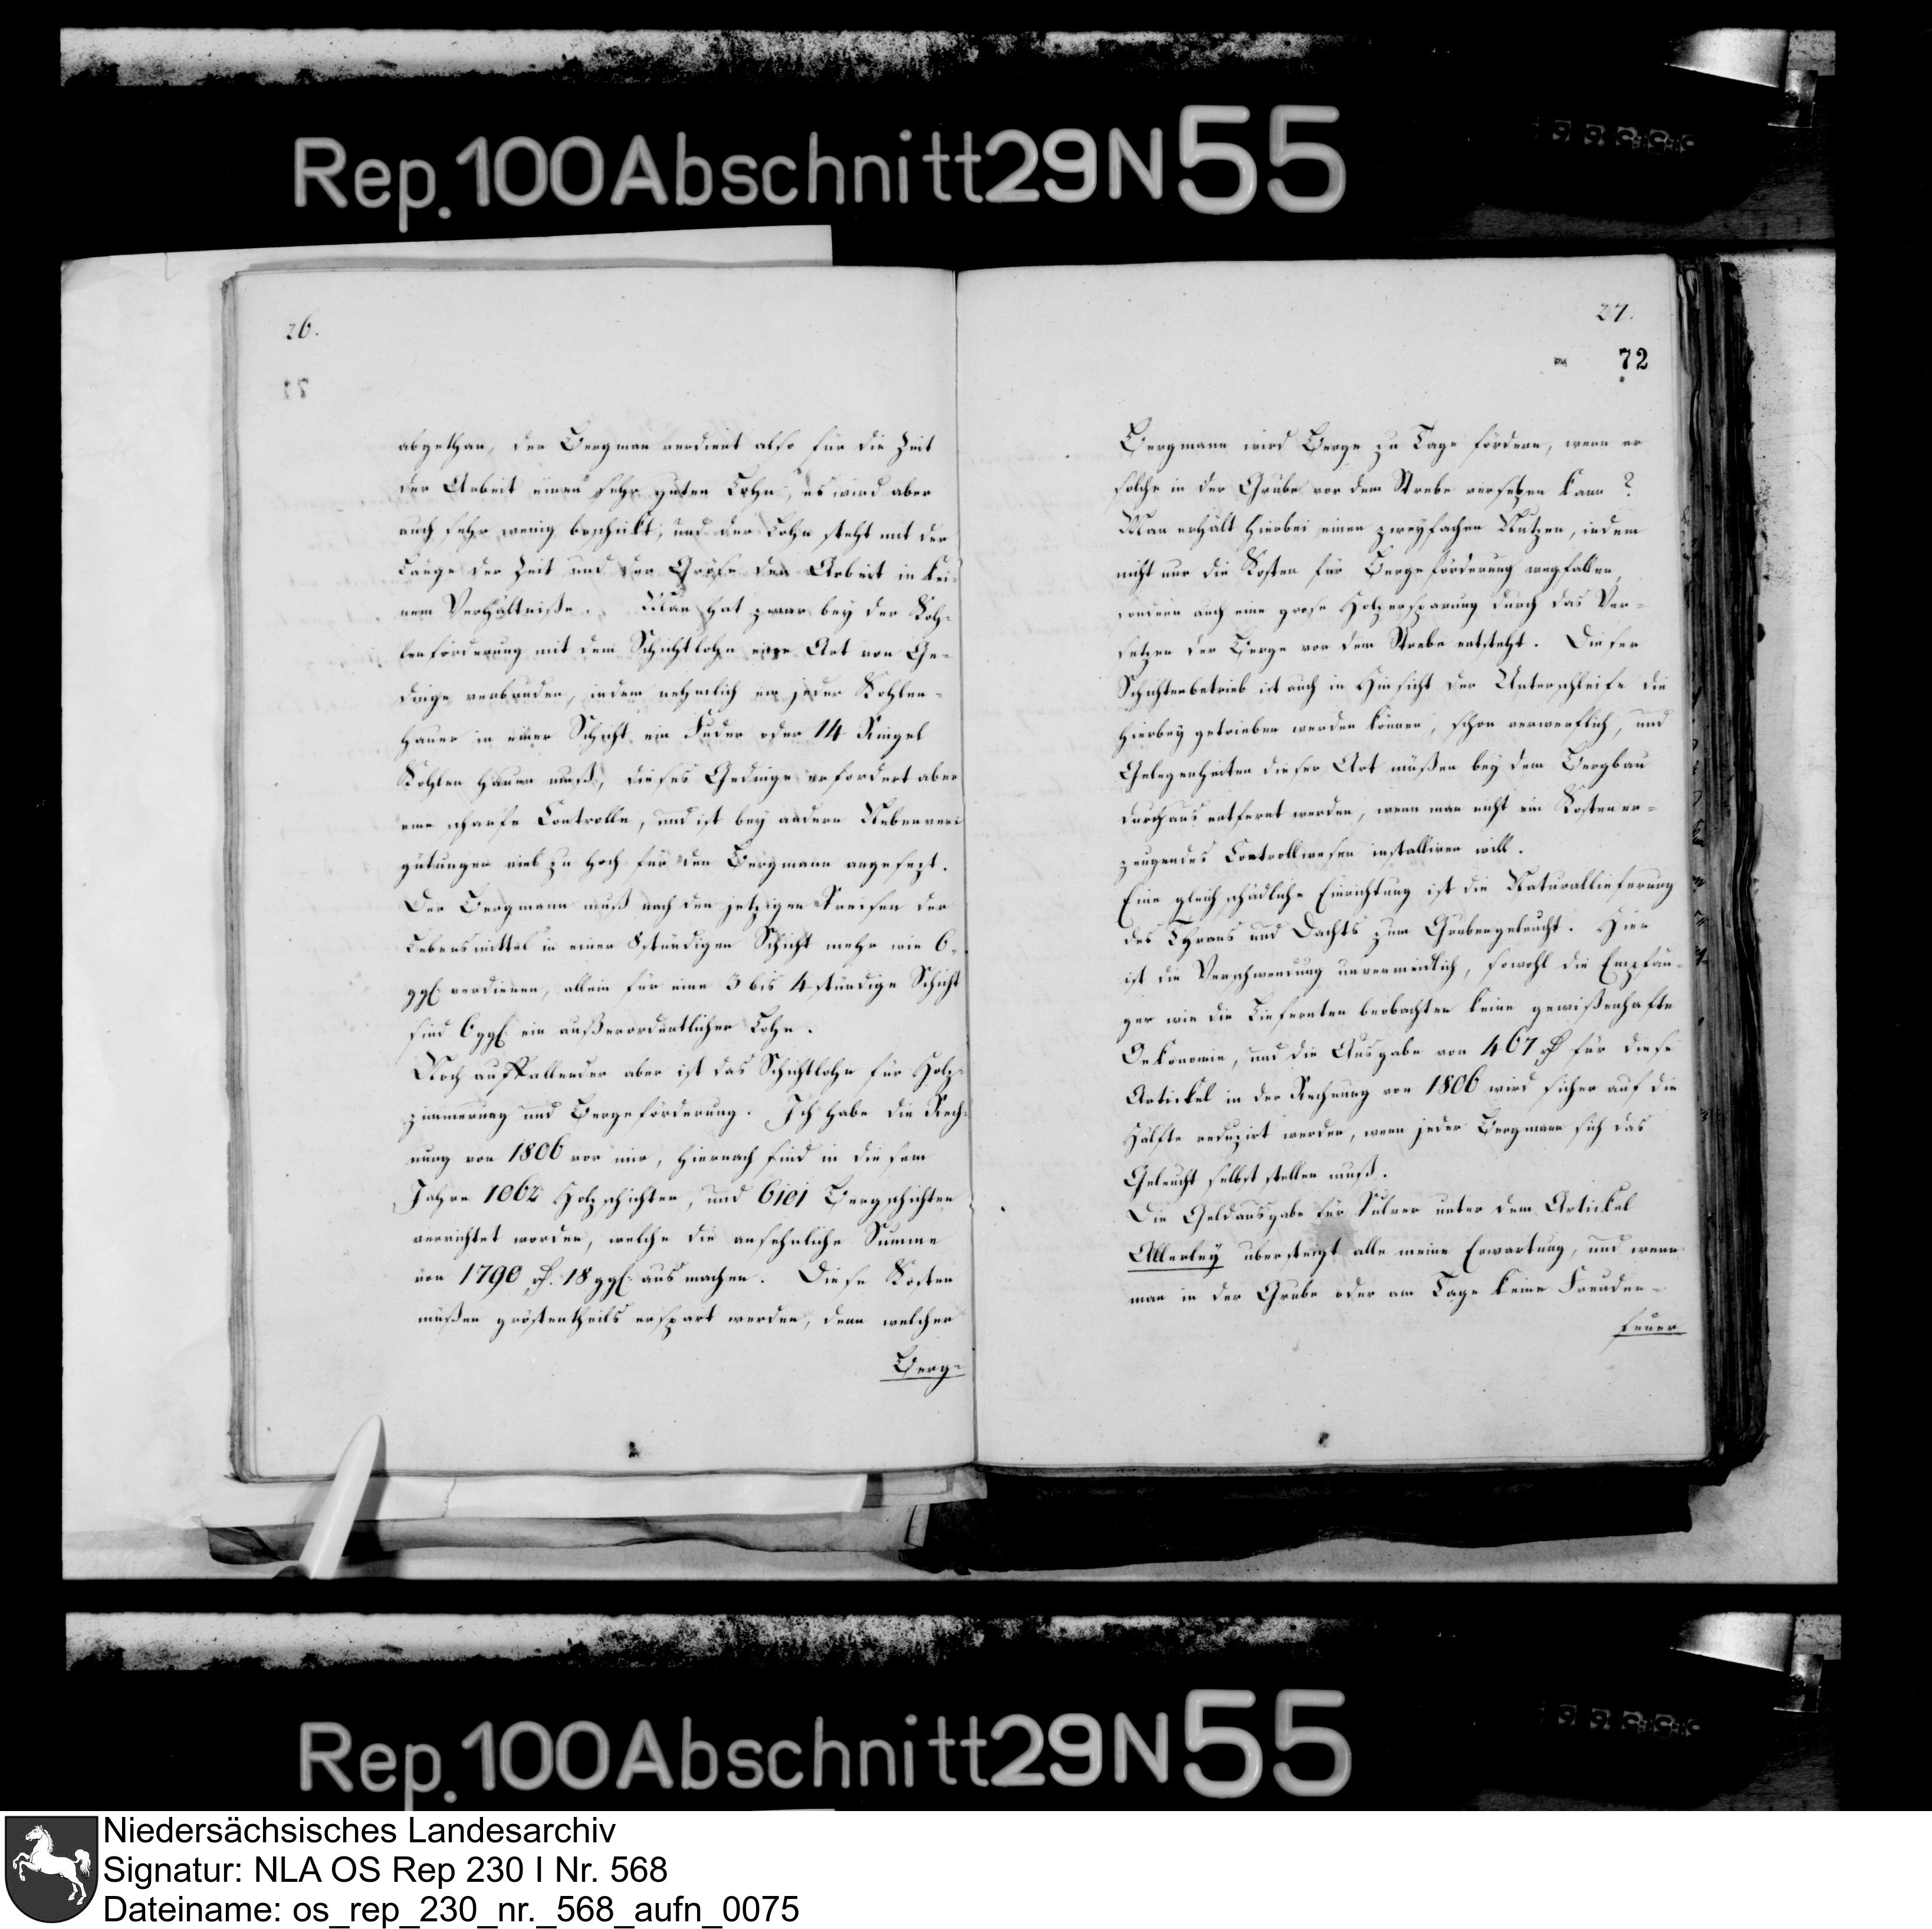 Rep. 100 Abschnitt 29 N 55
26.
abgethan, der Bergman verdient also für die Zeit
der Arbeit einen sehr guten Lohn, es wird aber
auch sehr wenig beschickt, und der Lohn steht mit der
Länge der Zeit und der Größe der Arbeit in kei-
nem Verhältniße. Man hat zwar bey der Koh-
lenförderung mit dem Schichtlohn eine Art von Ge-
dinge verbunden, indem nehmlich ein jeder Kohlen-
hauer in einer Schicht ein Fuder oder 14 Ringel
Kohlen hauen muß, dieses Gedinge erfordert aber
eine scharfe Controlle, und ist bey andern Nebenver-
gütungen viel zu hoch für den Bergmann angesezt.
Der Bergmann muß nach den jetzigen Preisen der
Lebensmittel in einer 8stündigen Schicht mehr wie 6
ggl. verdienen, allein für eine 3 bis 4stündige Schicht
sind 6 ggl. ein außerordentlicher Lohn.
Noch auffallender aber ist das Schichtlohn für Holz-
zimmerung und Bergeförderung. Ich habe die Rech-
nung von 1806 vor mir, hiernach sind in diesem
Jahre 1062 Holzschichten, und 6101 Bergschichten
verrichtet worden, welche die ansehnliche Summe
von 1790 rt. 18 ggl. ausmachen. Diese Kosten
müßen gröstentheils erspart werden, denn welcher
Berg-
27.
72
Bergmann wird Berge zu Tage fördern, wenn er
solche in der Grube vor dem Strebe versetzen kann?
Man erhält hierbei einen zweyfachen Nutzen, indem
nicht nur die Kosten für Bergeförderung wegfallen,
sondern auch eine grose Holzersparung durch das Ver-
setzen der Berge vor dem Strebe entsteht. Dieser
Schichtenbetrieb ist auch in Hinsicht der Unterschleife die
hierbey getrieben werden können, schon verwerflich, und
Gelegenheiten dieser Art müßen bey dem Bergbau
durchaus entfernt werden, wenn man nicht ein Kostener-
zeugendes Controllwesen installiren will.
Eine gleich schädliche Einrichtung ist die Naturallieferung
des Thrans und Dachts zum Grubengeleucht. Hier
ist die Verschwendung unvermeidlich, sowohl die Empfän-
ger wie die Lieferenten beobachten keine gewißenhafte
Oekonomie, und die Ausgabe von 467 rt für diese
Artickel in der Rechnung von 1806 wird sicher auf die
Hälfte reduzirt werden, wenn jeder Bergmann sich das
Geleucht selbst stellen muß.
Die Geldausgabe für Pulver unter dem Artickel
Allerley übersteigt alle meine Erwartung, und wenn
man in der Grube oder am Tage keine Freuden-
feuer
Rep. 100 Abschnitt 29 N 55
Niedersächsisches Landesarchiv
Signatur: NLA OS Rep 230 I Nr. 568
Dateiname: os_rep_230_nr._568_aufn_0075